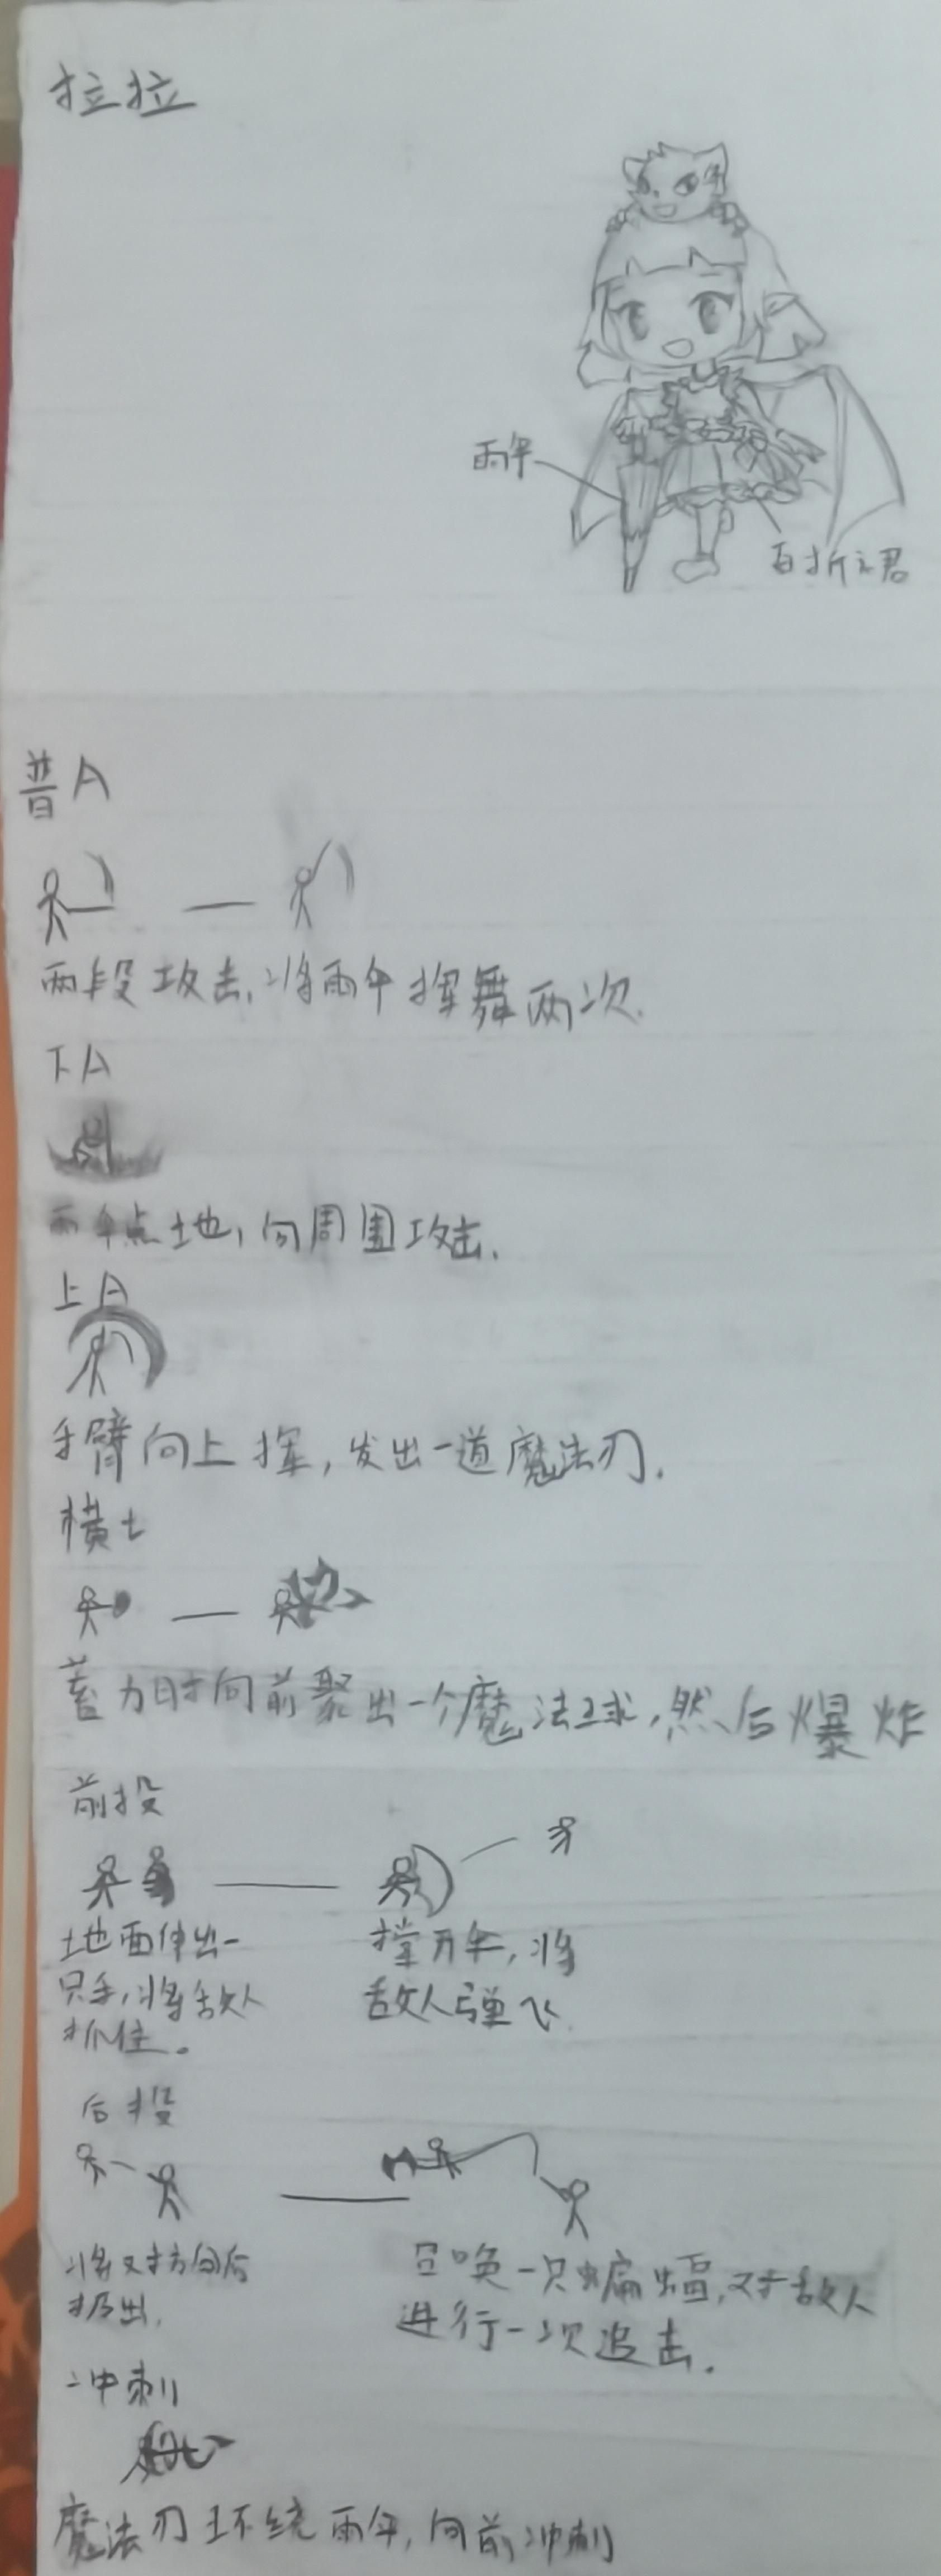 拉拉
雨伞
百折之君
普A
两段攻击,将雨伞挥舞两次.
下A
雨伞点地,向周围攻击.
上A
手臂向上挥,发出一道魔法刃.
横
蓄力时向前聚出一个魔法球,然后爆炸
前投
地面伸出一
只手,将敌人
抓住。
撑开伞,将
敌人弹飞.
后投
将对方向后
扔出.
召唤一只蝙蝠,对敌人
进行一次追击.
冲刺
魔法刃环绕雨伞,向前冲刺